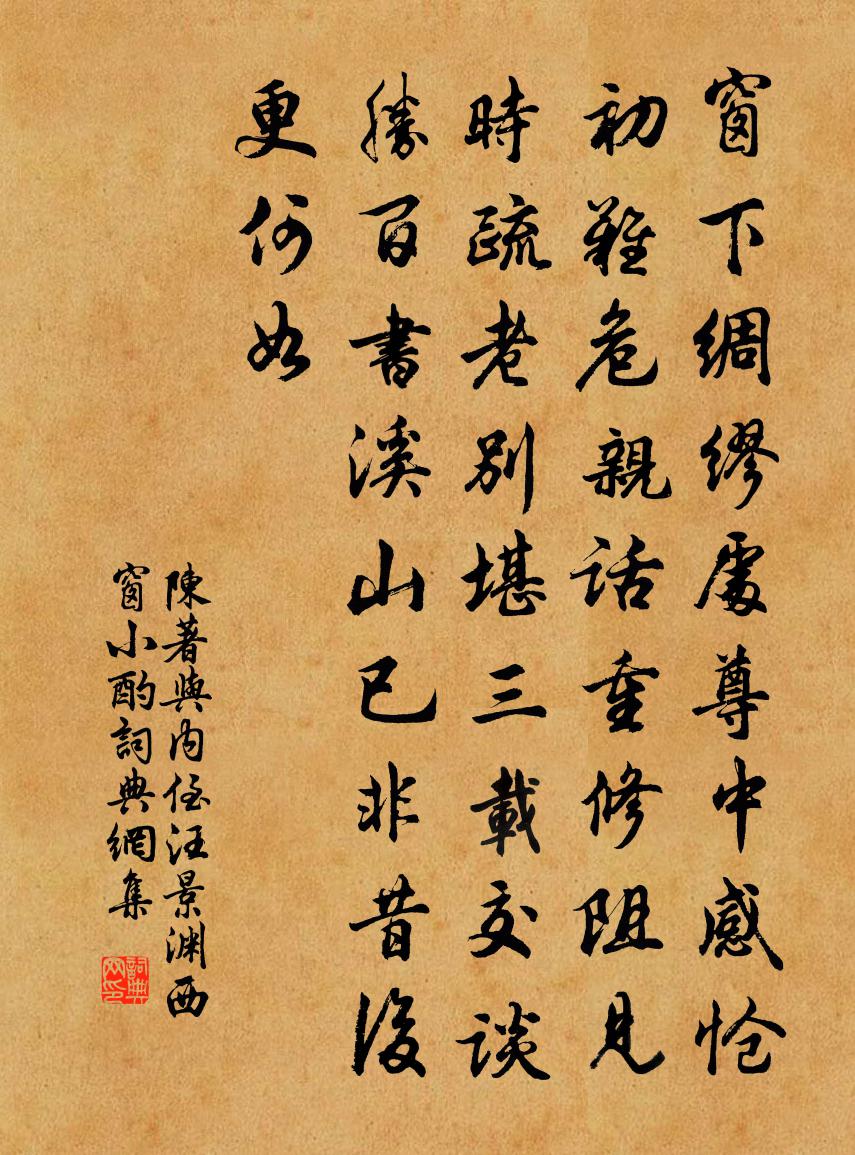 窗下綢繆處尊中感愴
初難危親話重修阻見
時疏老別堪三載交談
勝百書溪山已非昔後
更何如
陳著與內侄汪景淵西
窗小酌詞典網集
詞典網印